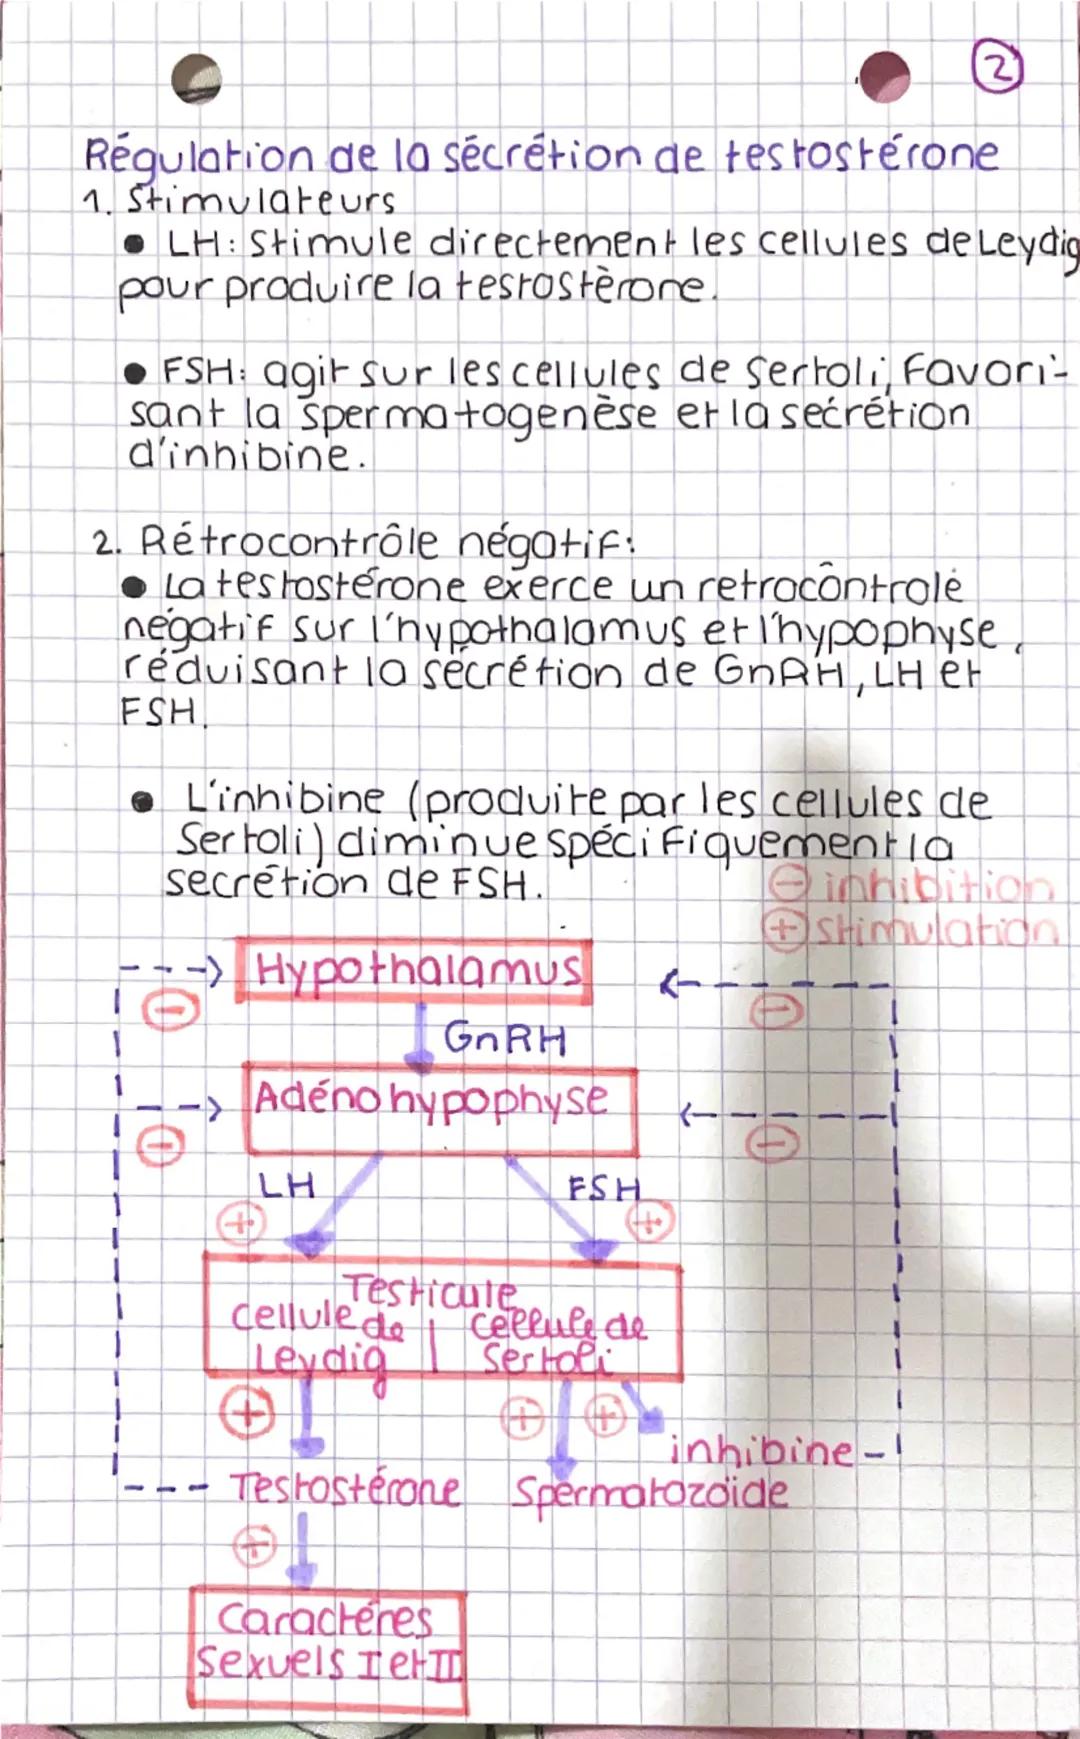 2
Régulation de la sécrétion de testostérone
1. Stimulateurs
● LH: Stimule directement les cellules de Leydig
pour produire la testostèrone.
● FSH: agit sur les cellules de Sertoli, Favori-
sant la spermatogenèse et la secrétion
d'inhibine.
2. Rétrocontrôle négatif:
● La testostérone exerce un retrocôntrolé
négatif sur l'hypothalamus et l'hypophyse,
réduisant la sécrétion de GnRH, LH et
FSH.
● L'inhibine (produite par les cellules de
Sertoli) diminue spécifiquement la
secrétion de FSH.
⊖ inhibition
⊕ stimulation
---> Hypothalamus <---
⊖ ⊖
GnRH
---> Adénohypophyse <---
⊖ ⊖
LH FSH
⊕ ⊕
Testicule
cellule de | cellule de
Leydig | Sertoli
⊕ ⊕ ⊕
inhibine
Testostérone Spermatozoïde
⊕
Caractéres
Sexuels I et II